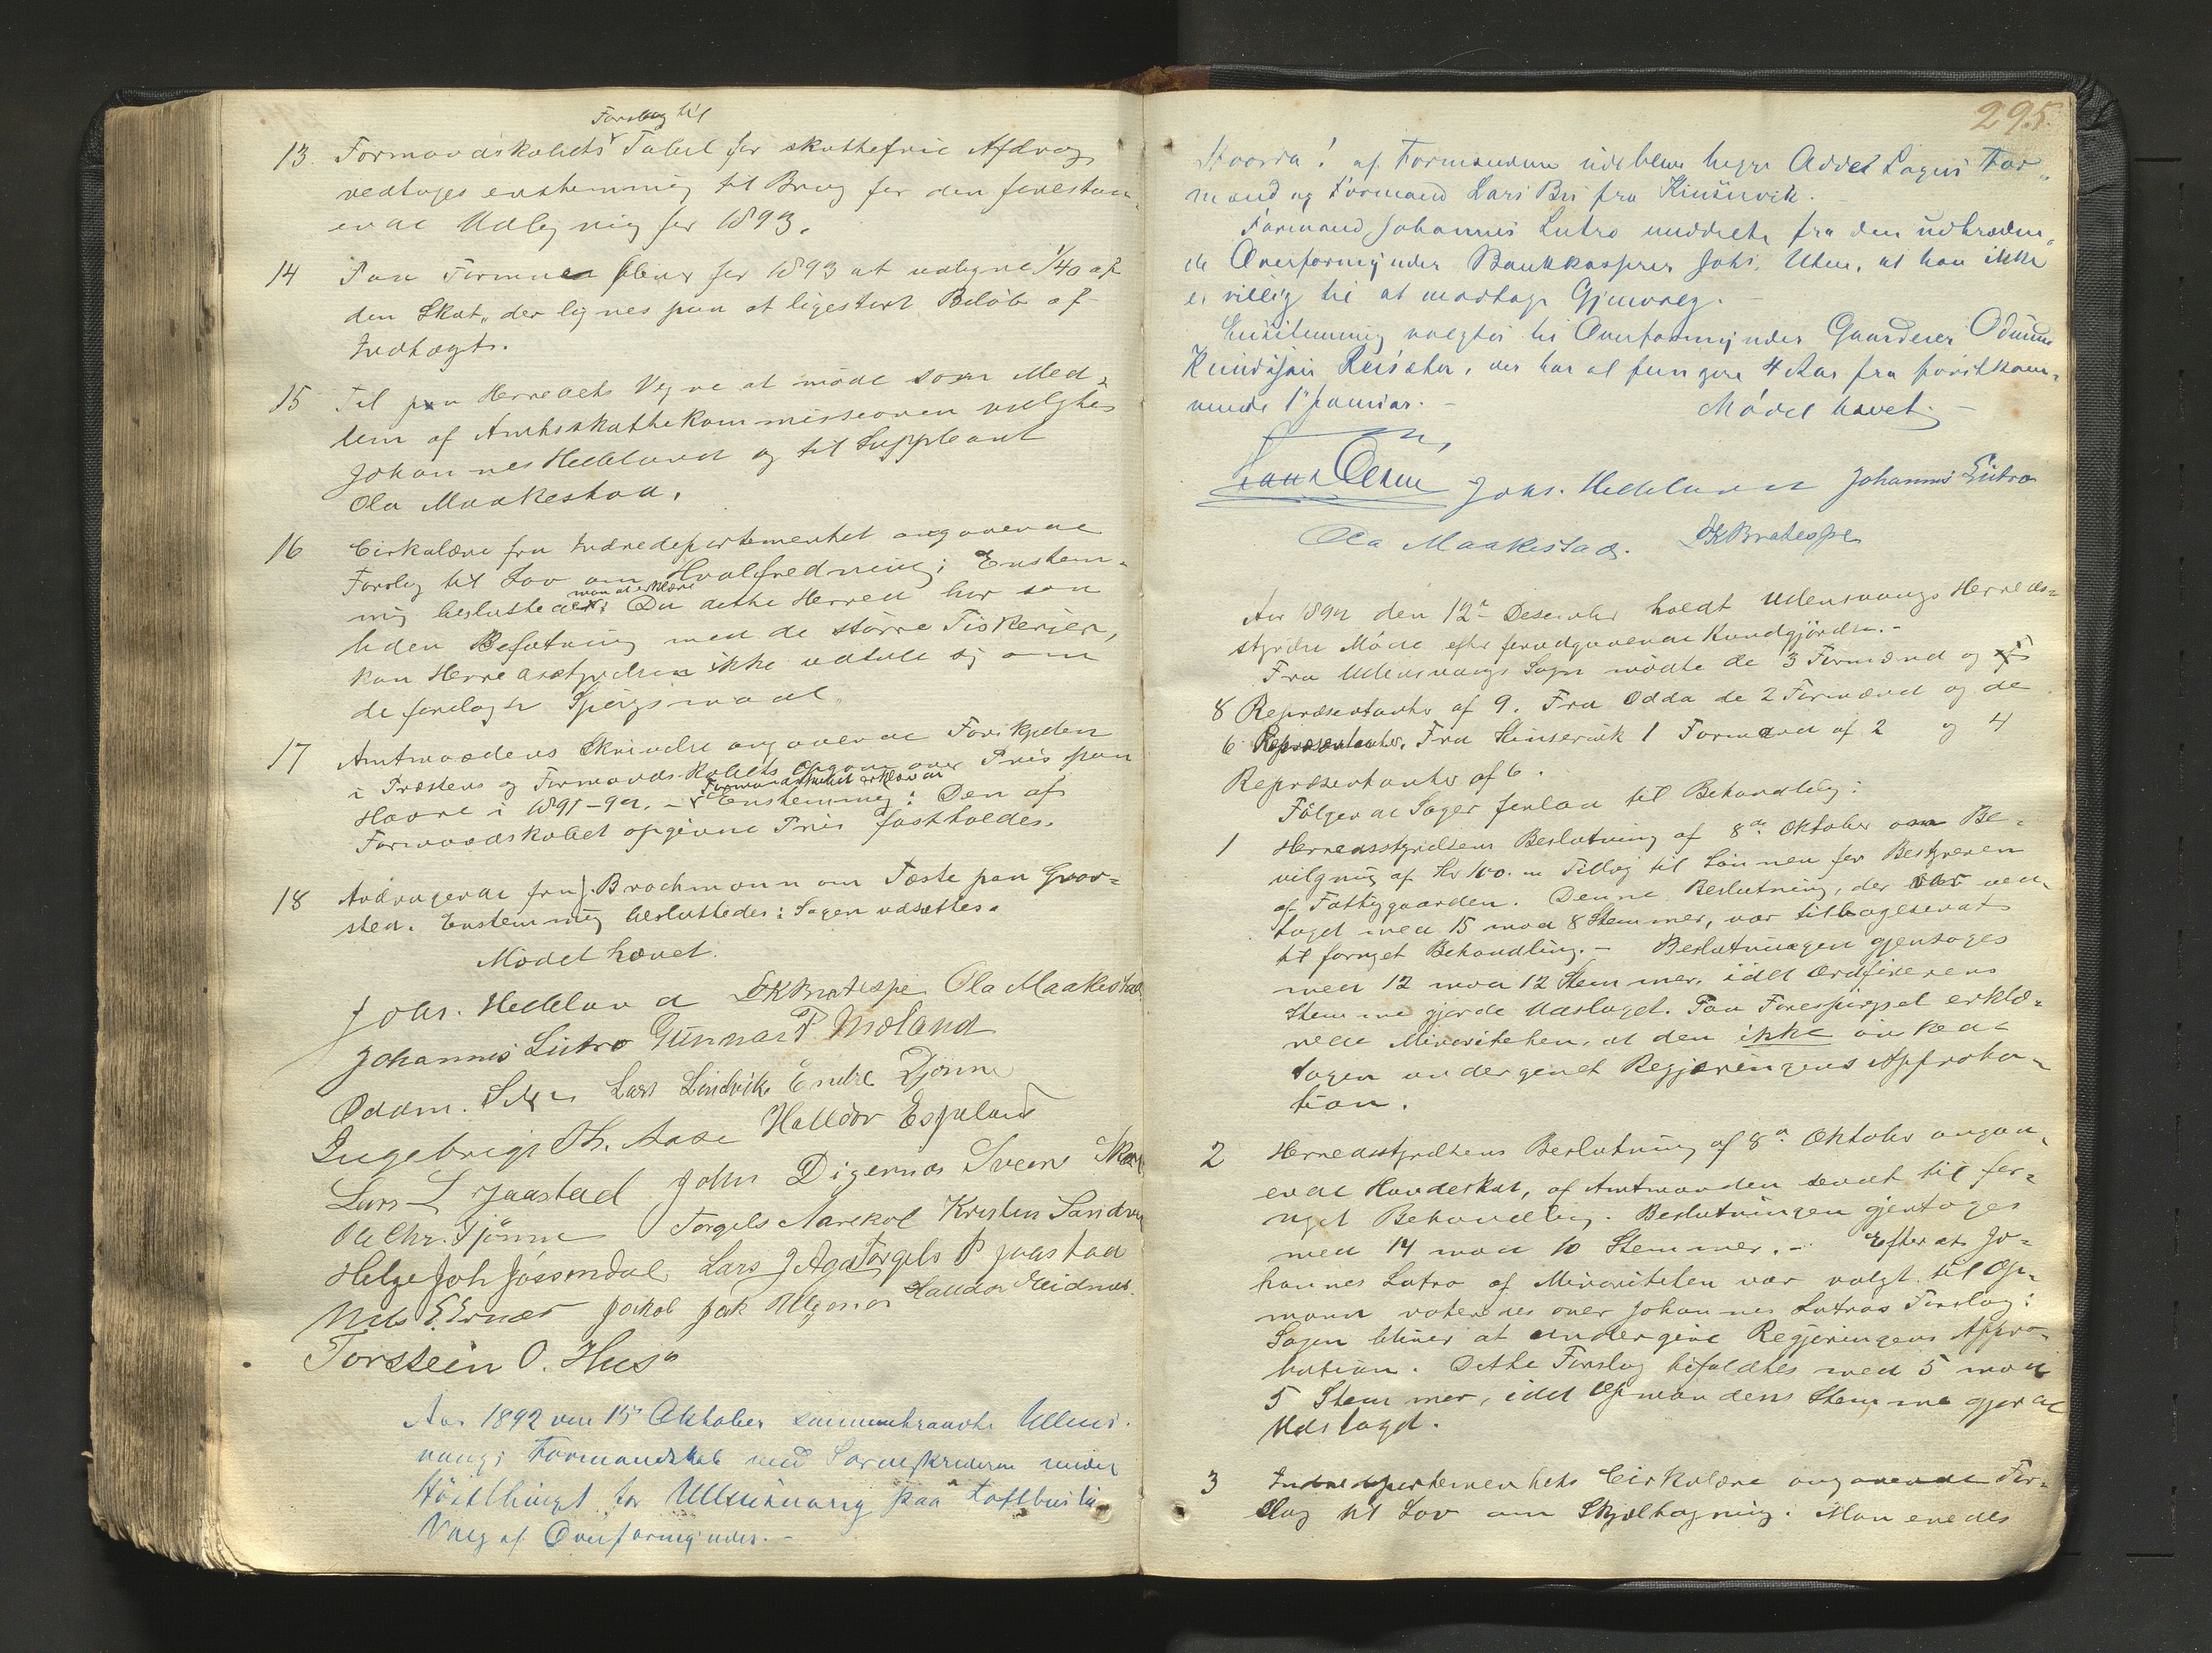 Forslag til
13. Formandskabets Tabel for skattefrie Afdrag
vedtoges enstemmig til Brug for den forestaa-
ende Udligning for 1893.
14 Paa Formue bliver for 1893 at udligne 1/40 af
den Skat, der lignes paa et ligestort Beløb af
Indtægt.
15 Til paa Herredets Vegne at møde som Med-
lem af Amtsskattekommissionen valgtes
Johannes Helleland og til Suppleant
Ola Maakestad.
16 Cirkulære fra Indredepartementet angaaende
Forslag til Lov om Hvalfredning; Enstem-
man at erklære
mig besluttedes: Da dette Herred har saa
liden Befatning med de større Fiskerier,
kan Herredsstyrelsen ikke udtale sig om
de forelagte Spørgsmaal.
17 Amtmandens Skrivelse angaaende Forskjellen
i Præstens og Formandskabets Opgave over Pris paa
Formandskabet erklærer
Havre i 1891-92. - Enstemmig: Den af
Formandskabet opgivne Pris fastholdes.
18 Andragende fra J. Brochmann om Fæste paa Gvor-
sted. Enstemmig besluttedes: Sagen udsættes.
Mødet hævet.
Johs. Helleland DKBratespe Ola Maakestad
Johannes Lutro Gunnar P. Mæland
Oddm. Lars Lindvik Endre Djønne
Ingebrigt Th. Aase Halldor Espeland
Lars L Jaastad John Digernæs Svein
Ole Chr. Djønne Torgels Aarekol Kristen Sandven
Helge Joh Jøssendal Lars J Aga Torgels P Jaastad
Nils S. Ernæs Jakob Jak Halldor Eidnæs.
Torstein O. Hus
Aar 1892 den 15de Oktober sammentraadte Ullens-
vangs Formandskab med Sorenskriveren under
Høstthinget for Ullensvang paa Lofthus til
Valg af Overformynder. -
295.
Hvorda! af Formændene udebleve begge Odda Sogns For-
mænd og Formand Lars Bu fra Kinservik.
Formand Johannes Lutro meddelte fra den udtræden-
de Overformynder Bankkasserer Johs. Utne, at han ikke
er villig til at modtage Gjenvalg. -
Enstemmig valgtes til Overformynder Gaardeier Odmund
Knudssøn Reisæter, der har at fungere 4 Aar fra førstkom-
mende 1ste Januar. - Mødet hævet. -
Johs. Helleland Johannes Lutro
Ola Maakestad. DKBratespe
Aar 1892 den 12te December holdt Ullensvangs Herreds-
styrelse Møde efter forudgaaende Kundgjørelse. -
Fra Ullensvangs Sogn mødte de 3 Formænd og
8 Repræsentanter af 9. Fra Odda de 2 Formænd og de
6 Repræsentanter. Fra Kinservik 1 Formand af 2 og 4
Repræsentanter af 6.
Følgende Sager forlaa til Behandling:
1 Herredsstyrelsens Beslutning af 8de Oktober om Be-
vilgning af Kr 100.00 Tillæg til Lønnen for Bestyreren
af Fattiggaarden. Denne Beslutning, der var ved-
taget med 15 mod 8 Stemmer, var tilbagesendt
til fornyet Behandling. - Beslutningen gjentoges
med 12 mod 12 Stemmer, idet Ordførerens
Stemme gjorde Udslaget. Paa Forespørgsel erklæ-
rede Minoriteten, at den ikke ønskede
Sagen undergivet Regjeringens Approba-
tion.
2 Herredsstyrelsens Beslutning af 8de Oktober angaa-
ende Hundeskat, af Amtmanden sendt til for-
nyet Behandling. Beslutningen gjentoges
med 14 mod 10 Stemmer. - Efterat Jo-
hannes Lutro af Minoriteten var valgt til Op-
mann voteredes over Johannes Lutros Forslag:
Sagen bliver at undergive Regjeringens Appro-
bation. Dette Forslag bifaldtes med 5 mod
5 Stemmer, idet Opmandens Stemme gjorde
Udslaget.
3 Indredepartementets Cirkulære angaaende For-
slag til Lov om Skjeltagning. Man enedes